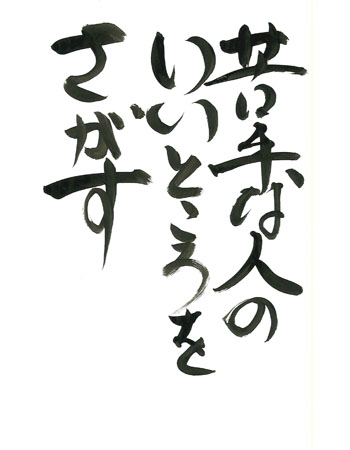 苦手な人の
いいところを
さがす